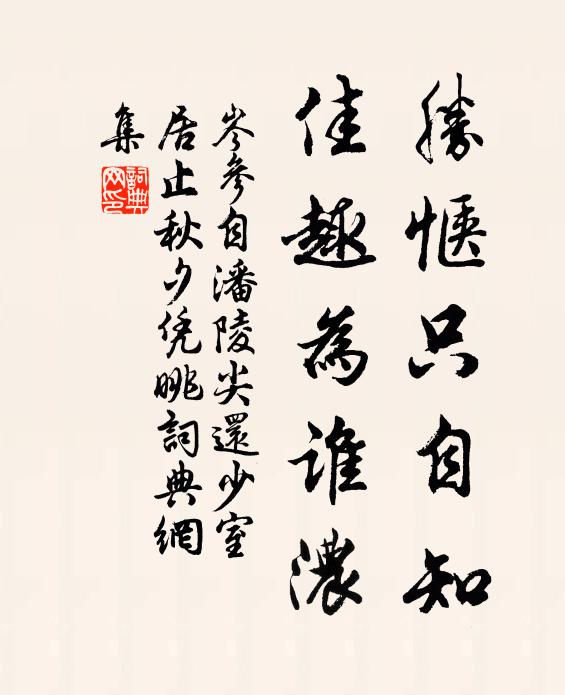 勝愜只自知
佳趣為誰濃
岑參自潘陵尖還少室
居止秋夕凭眺詞典網
集
詞典网印